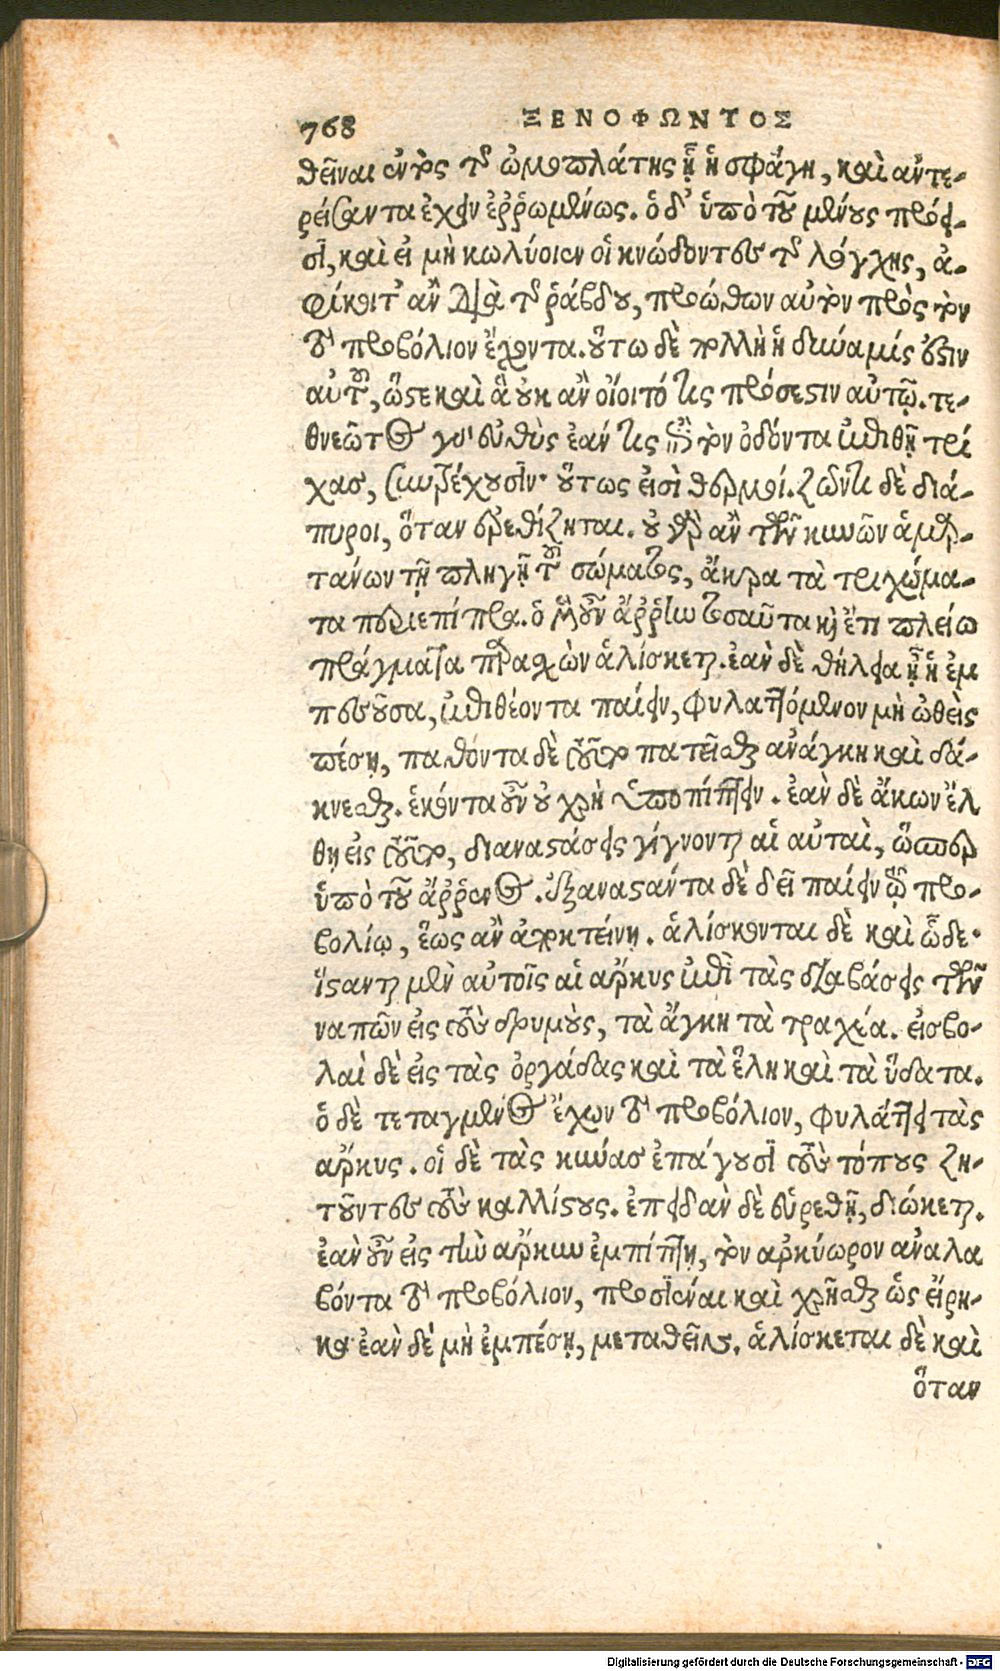 768
ΞΕΝΟΦΩΝΤΟΣ
θεῖναι ἐντὸς τῆς ὠμοπλάτης ᾗ ἡ σφάγη, καὶ ἀντε-
ρείσαντα ἔχειν ἐῤῥωμένως. ὁ δ' ὑπὸ τοῦ μένους πρόει-
σι, καὶ εἰ μὴ κωλύοιεν οἱ κνώδοντες τῆς λόγχης, ἀ-
φίκοιτ' ἂν διὰ τῆς ῥάβδου, προώθων αὑτὸν πρὸς τὸν
τὸ προβόλιον ἔχοντα. οὕτω δὲ πολλὴ ἡ δύναμίς ἐστιν
αὐτοῦ, ὥστε καὶ ἃ οὐκ ἂν οἴοιτό τις πρόσεστιν αὐτῷ. τε-
θνεῶτος γὸ εὐθὺς ἐάν τις ἐπὶ τὸν ὀδόντα ἐπιθῇ τρί
χας, συντρέχουσιν· οὕτως εἰσὶ θερμοί. ζῶντι δὲ διά-
πυροι, ὅταν ἐρεθίζηται. οὐ γὰρ ἂν τῶν κυνῶν ἁμαρ-
τάνων τῇ πληγῇ τοῦ σώματος, ἄκρα τὰ τριχώμα-
τα περιεπίπρα. ὁ μὲν οὖν ἄῤῥην τοσαῦτα καὶ ἔτι πλείω
πράγματα παραχὼν ἁλίσκεται. ἐὰν δὲ θήλεια ᾖ ἡ ἐμ
πεσοῦσα, ἐπιθέοντα παίειν, φυλαττόμενον μὴ ὠθεὶς
πέσῃ, παθόντα δὲ τοῦτο πατεῖσθαι ἀνάγκη καὶ δά-
κνεσθαι. ἑκόντα οὖν οὐ χρὴ ὑποπίπτειν. ἐὰν δὲ ἄκων ἔλ
θῃ εἰς τοῦτο, διαναστάσεις γίγνονται αἱ αὐταὶ, ὥσπερ
ὑπὸ τοῦ ἄῤῥενος. ἐξαναστάντα δὲ δεῖ παίειν τῷ προ-
βολίῳ, ἕως ἂν ἀποκτείνῃ. ἁλίσκονται δὲ καὶ ὧδε·
ἵστανται μὲν αὐτοῖς αἱ ἄρκυς ἐπὶ τὰς διαβάσεις τῶν
ναπῶν εἰς τοὺς δρυμοὺς, τὰ ἄγκη τὰ τραχέα. εἰσβο-
λαὶ δὲ εἰς τὰς ὀργάδας καὶ τὰ ἕλη καὶ τὰ ὕδατα.
ὁ δὲ τεταγμένος ἔχων τὸ προβόλιον, φυλάττει τὰς
ἄρκυς. οἱ δὲ τὰς κύνας ἐπάγουσι τοὺς τόπους ζη-
τοῦντες τοὺς καλλίστους. ἐπειδὰν δὲ εὑρεθῇ, διώκεται.
ἐὰν οὖν εἰς τὴν ἄρκυν ἐμπίπτῃ, τὸν ἀρκύωρον ἀναλα
βόντα τὸ προβόλιον, προσιέναι καὶ χρῆσθαι ὡς εἴρη-
κα ἐὰν δὲ μὴ ἐμπέσῃ, μεταθεῖν. ἁλίσκεται δὲ καὶ
ὅταν
Digitalisierung gefördert durch die Deutsche Forschungsgemeinschaft - DFG